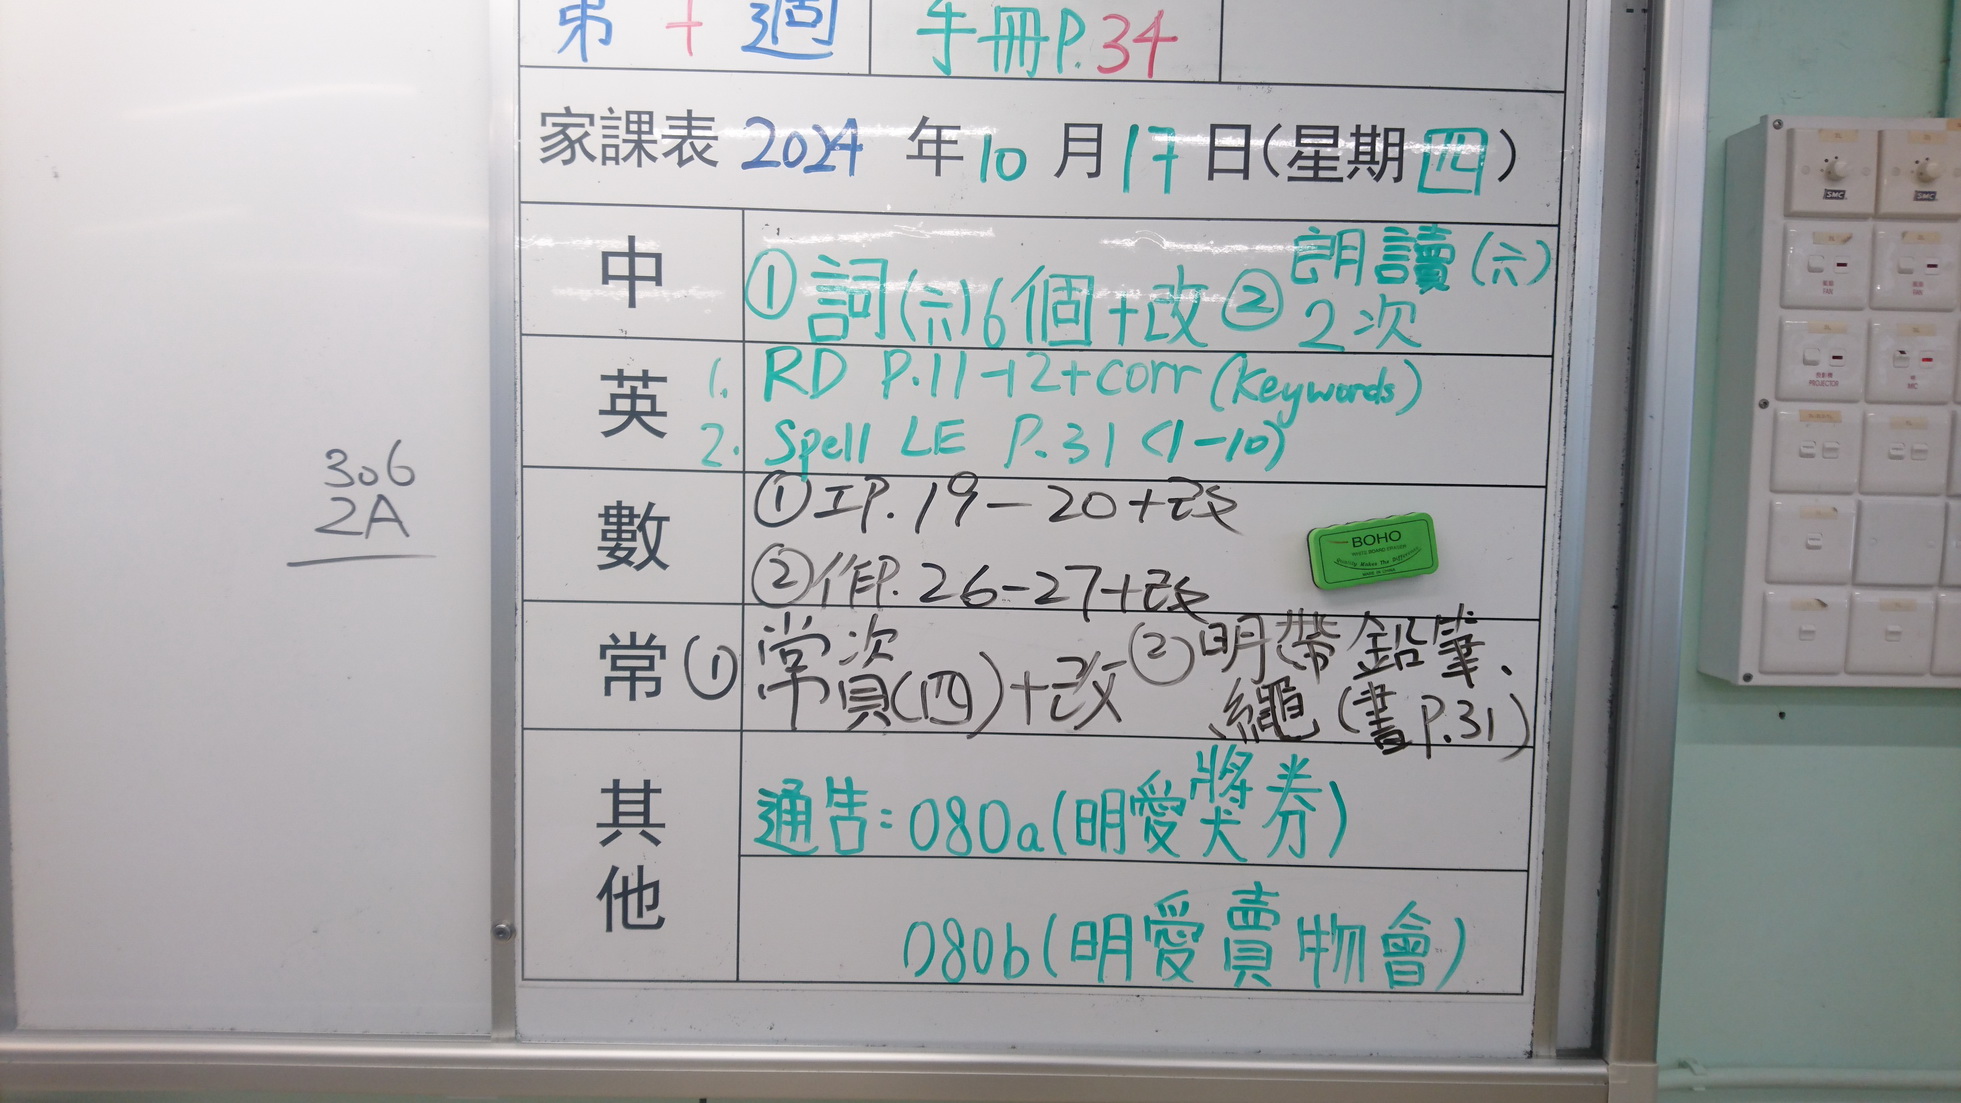 第十週 手冊P.34
家課表 2024 年 10 月 17 日(星期 四)
中 ①詞(六)6個+改 ②朗讀(六)
2次
英 1. RD P.11-12+corr (Keywords)
2. Spell LE P.31 (1-10)
數 ①工P.19-20+改
②作P.26-27+改
BOHO
常 ① 常資(四)+改 ②明帶鉛筆、
繩(書P.31)
其他
通告:080a(明愛獎券)
080b(明愛賣物會)
306
2A
SMC
SMC
PROJECTOR